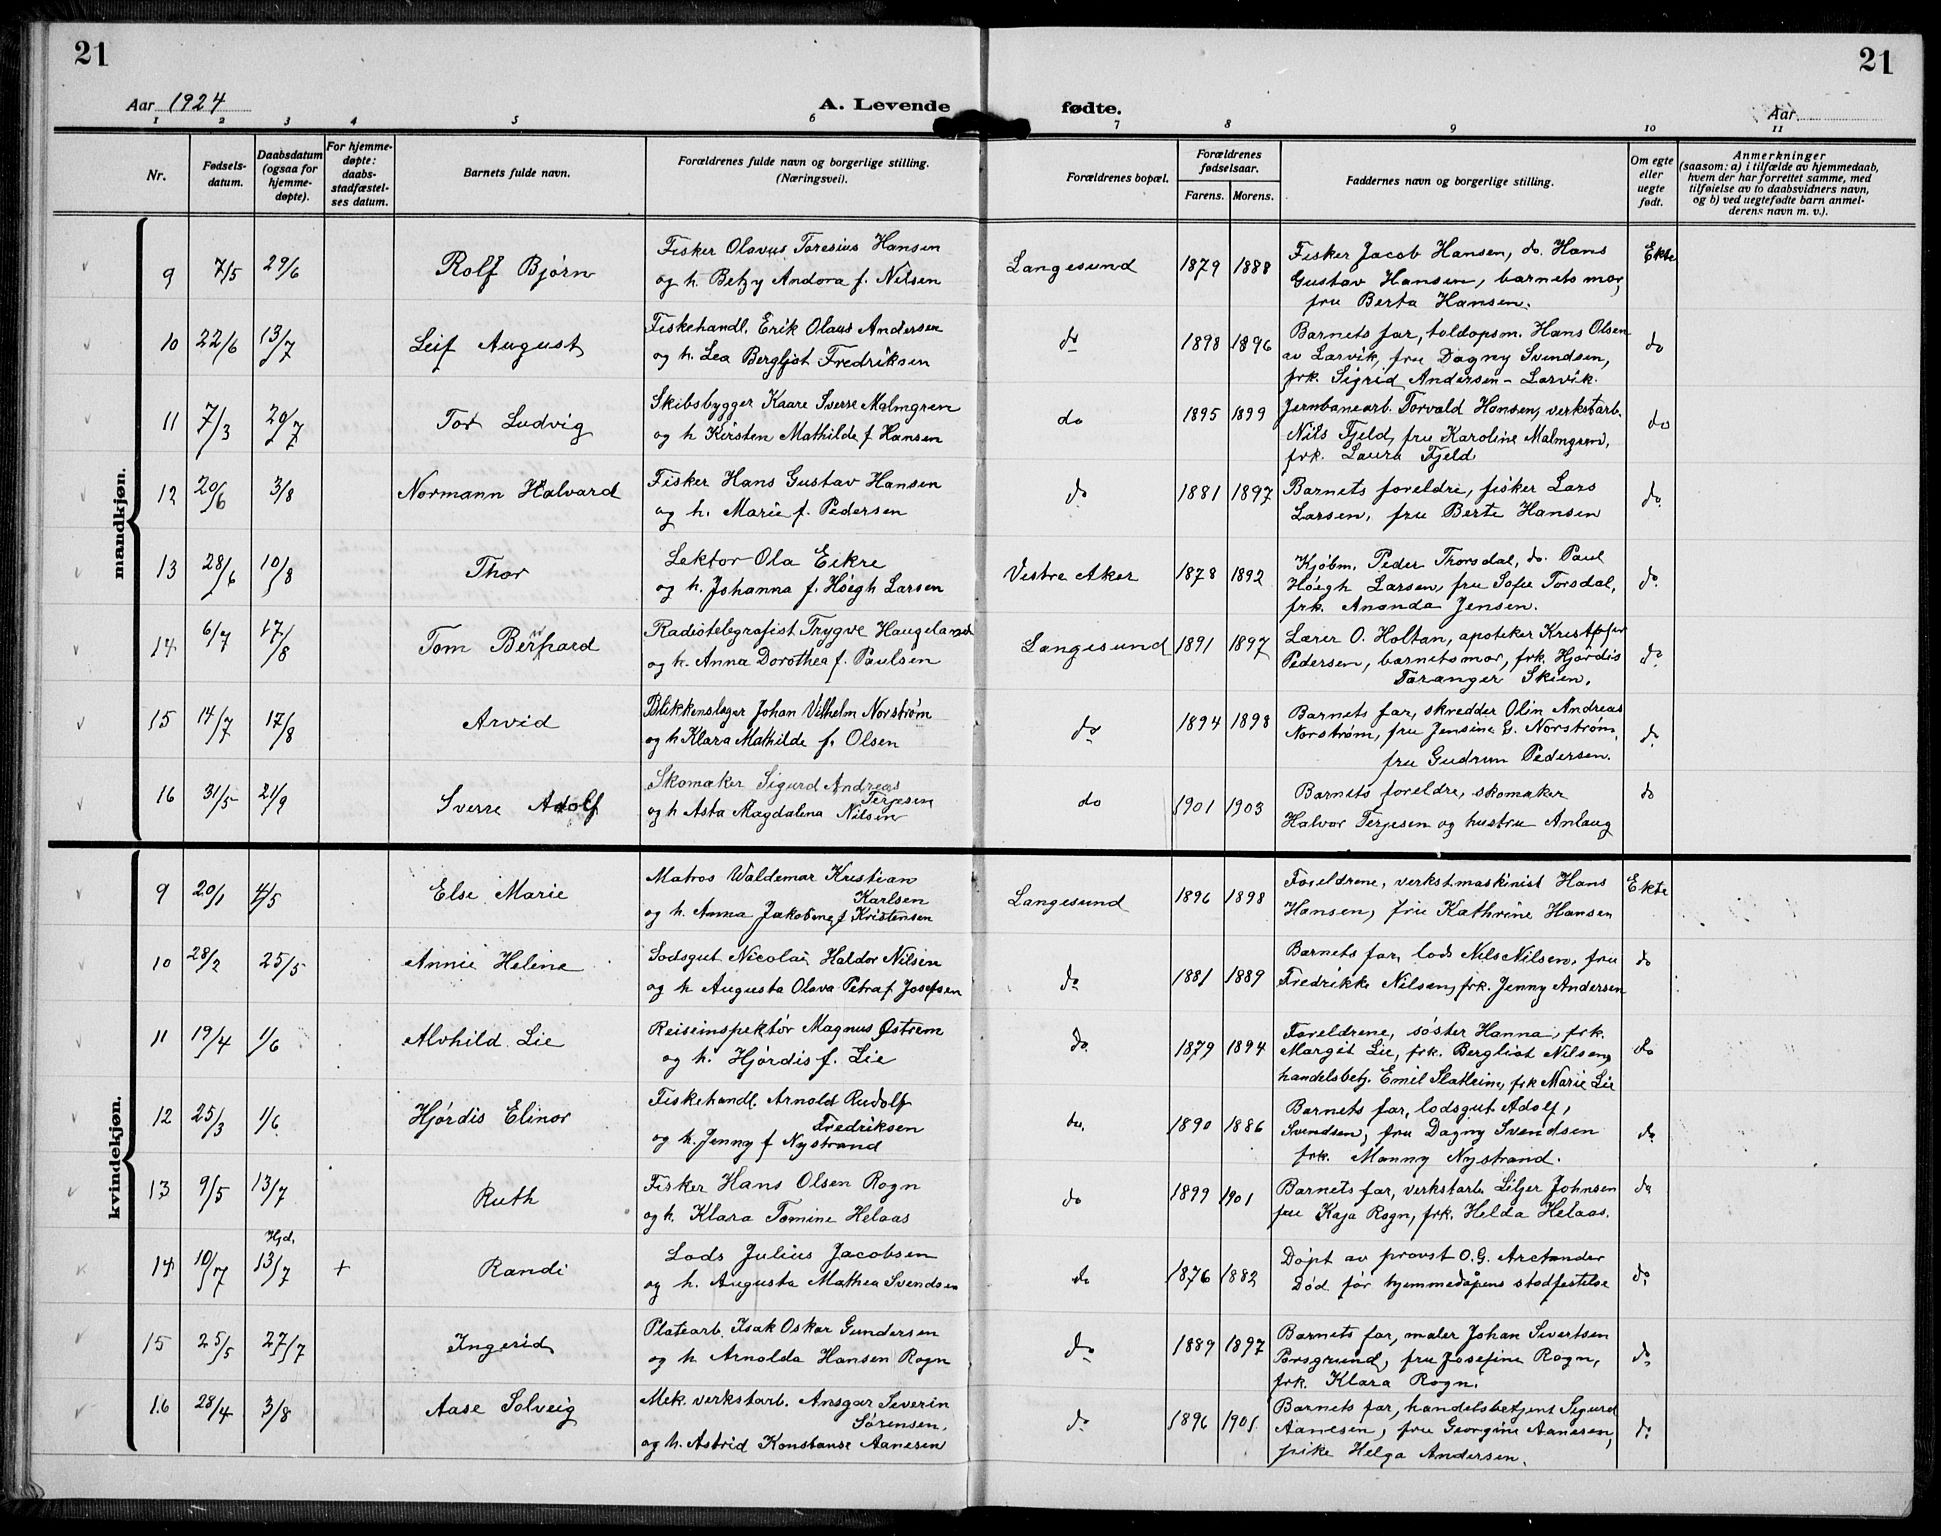 21
21
Aar 1924
A. Levende fødte.
Aar
1 2 3 4 5 6 7 8 9 10 11
Nr.
Fødsels-
datum.
Daabsdatum
(ogsaa for
hjemme-
døpte).
For hjemme-
døpte:
daabs-
stadfæstel-
ses datum.
Barnets fulde navn.
Forældrenes fulde navn og borgerlige stilling.
(Næringsvei).
Forældrenes bopæl.
Forældrenes
fødselsaar.
Farens. Morens.
Faddernes navn og borgerlige stilling.
Om egte
eller
uegte
født.
Anmerkninger
(saasom: a) i tilfælde av hjemmedaab,
hvem der har forrettet samme, med
tilføielse av to daabsvidners navn,
og b) ved uegtefødte barn anmel-
derens navn m. v.).
mandkjøn.
9 7/5 29/6 Rolf Bjørn
Fisker Olavus Toresius Hansen
og h. Betzy Andora f. Nilsen
Langesund 1879 1888
Fisker Jacob Hansen, do. Hans
Gustav Hansen, barnets mor,
fru Berta Hansen.
Ekte
10 22/6 13/7 Leif August
Fiskehandl. Erik Olaus Andersen
og h. Lea Bergljot Fredriksen
do 1898 1896
Barnets far, toldopsm. Hans Olsen
av Larvik, fru Dagny Svendsen,
frk. Sigrid Andersen - Larvik.
do
11 7/3 20/7 Tor Ludvig
Skibsbygger Kaare Sverre Malmgren
og h Kirsten Mathilde f. Hansen
do 1895 1899
Jernbanearb. Torvald Hansen, verkstarb.
Nils Fjeld, fru Karoline Malmgren,
frk. Laura Fjeld
do
12 20/6 3/8 Normann Halvard
Fisker Hans Gustav Hansen
og h. Marie f. Pedersen
do 1881 1897
Barnets foreldre, fisker Lars
Larsen, fru Berte Hansen
do
13 28/6 10/8 Thor
Lektor Ola Eikre
og h. Johanna f. Høegh Larsen
Vestre Aker 1878 1892
Kjøbm. Peder Thorsdal, do. Paul
Høegh Larsen, fru Sofie Torsdal,
frk. Ananda Jensen.
do.
14 6/7 17/8 Tom Bernhard
Radiotelegrafist Trygve Haugeland
og h. Anna Dorothea f. Paulsen
Langesund 1891 1897
Lærer O. Holtan, apoteker Kristofer
Pedersen, barnets mor, frk. Hjørdis
Taranger Skien.
do
15 14/7 17/8 Arvid
Blikkenslager Johan Vilhelm Norstrøm
og h Klara Mathilde f. Olsen
do 1894 1898
Barnets far, skredder Olin Andreas
Norstrøm, fru Jensine G. Norstrøm,
fru Gudrun Pedersen.
do
16 31/5 21/9 Sverre Adolf
Skomaker Sigurd Andreas
Terjesen
og h Asta Magdalena Nilsen
do 1901 1903
Barnets foreldre, skomaker
Halvor Terjesen og hustru Anlaug
do
kvindekjøn.
9 20/1 4/5 Else Marie
Matros Waldemar Kristian
Karlsen
og h. Anna Jakobine f Kristensen
Langesund 1896 1898
Foreldrene, verkstmaskinist Hans
Hansen, fru Kathrine Hansen
Ekte
10 28/2 25/5 Annie Helene
Lodsgut Nicolai Haldor Nilsen
og h Augusta Olava Petra f. Josefsen
do 1881 1889
Barnets far, lods Nils Nilsen, fru
Fredrikke Nilsen, frk. Jenny Andersen
do
11 19/4 1/6 Alvhild Lie
Reiseinspektør Magnus Østrem
og h. Hjørdis f. Lie
do 1879 1894
Foreldrene, søster Hanna, frk.
Margit Lie, frk. Bergliot Nilsen,
handelsbetj. Emil Slatleim, frk Marie Lie
do
12 25/3 1/6 Hjørdis Elinor
Fiskehandl. Arnold Rudolf
Fredriksen
og h. Jenny f Nystrand
do. 1890 1886
Barnets far, lodsgut Adolf,
Svendsen, fru Dagny Svendsen
frk. Manny Nystrand.
do
13 9/5 13/7 Ruth
Fisker Hans Olsen Rogn
og h. Klara Tomine Helaas
do 1899 1901
Barnets far, verkstarb. Liljer Johnsen
fru Kaja Rogn, frk. Helda Helaas.
do
Hjd.
14 10/7 13/7 + Randi
Lods Julius Jacobsen
og h. Augusta Mathea Svendsen
do 1876 1882
Døpt av provst O.G. Arctander
Død før hjemmedåpens stadfestelse
do
15 25/5 27/7 Ingerid
Platearb. Isak Oskar Gundersen
og h Arnolda Hansen Rogn
do 1889 1897
Barnets far, maler Johan Sivertsen
Porsgrund, fru Josefine Rogn,
frk. Klara Rogn.
do
16 28/4 3/8 Aase Solveig
Mek. verkstarb. Ansgar Severin
Sørensen.
og h. Astrid Konstanse Aanesen
do 1896 1901
Barnets far, handelsbetjent Sigurd
Aanesen, fru Georgine Aanesen,
pike Helga Andersen.
do